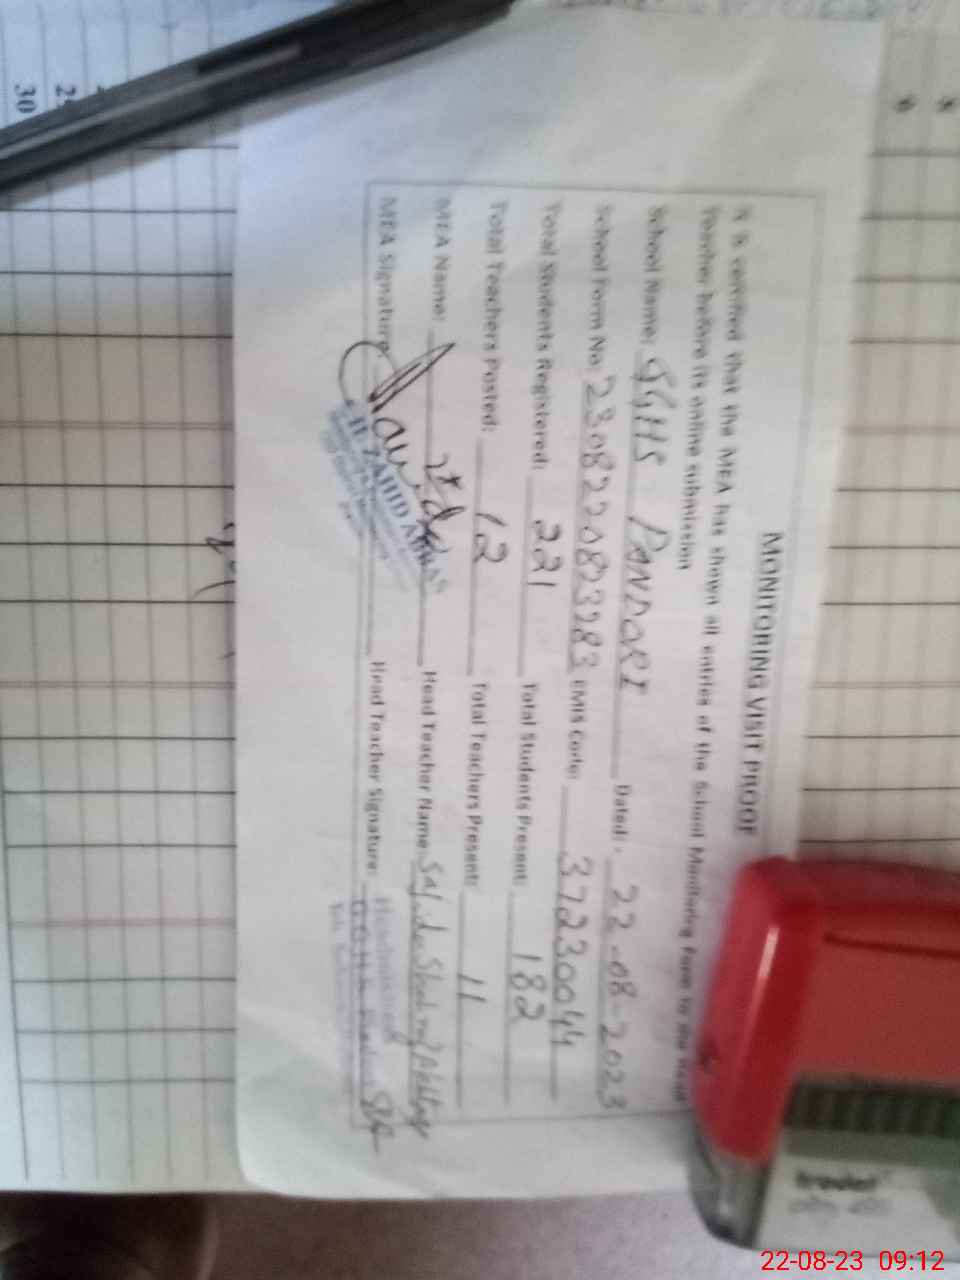 MONITORING VISIT PROOF
It is certified that the MEA has shown all entries of the School Monitoring Form to the Head
Teacher before its online submission
School Name: GGHS PANDORI Dated: 22-08-2023
School Form No: 2308220823283 EMIS Code: 37230044
Total Students Registered: 221 Total Students Present: 182
Total Teachers Posted: 12 Total Teachers Present: 11
MEA Name: Head Teacher Name:
MEA Signature: Head Teacher Signature:
ZAHID
30
22-08-23 09:12